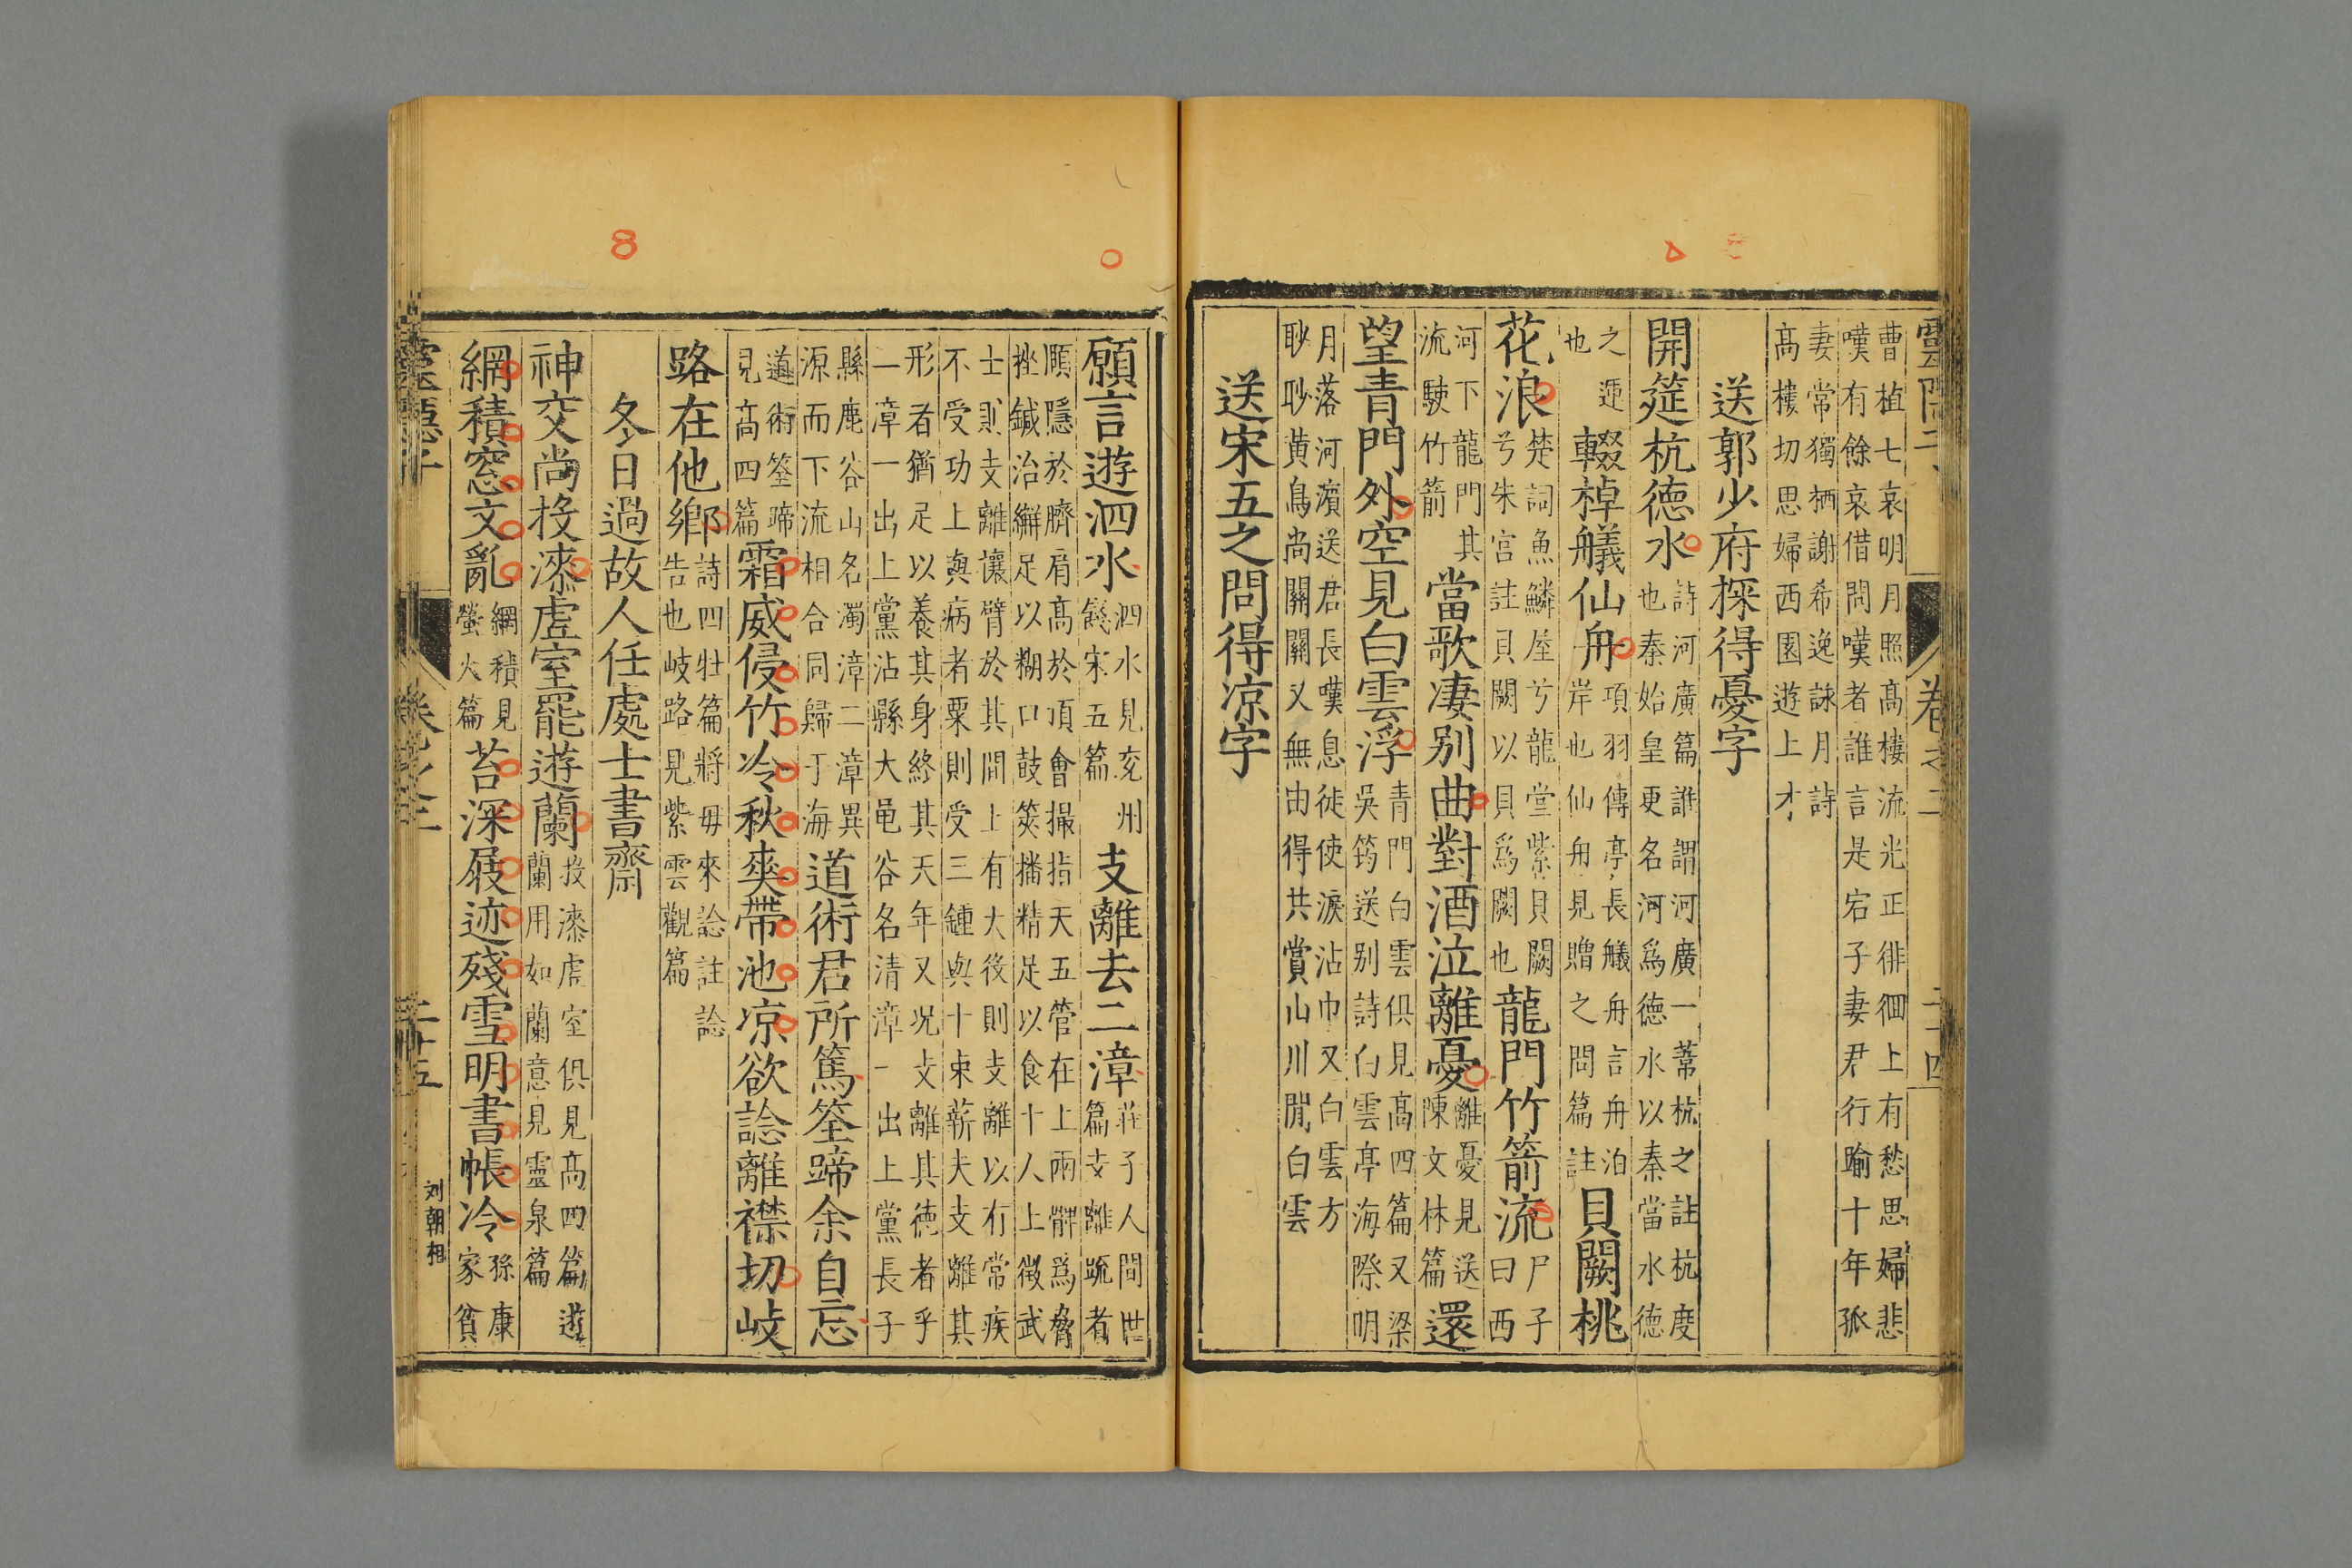 曹植七哀明月照高樓流光正徘徊上有愁思婦悲
嘆有餘哀借問嘆者誰言是宕子妻君行踰十年孤
妻常獨栖謝希逸詠月詩
高樓切思婦西園遊上才
送郭少府探得憂字
開筵杭德水
詩河廣篇誰謂河廣一葦杭之註杭度
也秦始皇更名河為德水以秦當水德
之
也
輟棹艤仙舟
項羽傳亭長艤舟言舟泊
岸也仙舟見贈之問篇註
貝闕桃
花浪
楚詞魚鱗屋兮龍堂紫貝闕
兮朱宮註貝闕以貝為闕也
龍門竹箭流
尸子
曰西
河下龍門其
流駛竹箭
當歌凄别曲對酒泣離憂
離憂見送
陳文林篇
還
望青門外空見白雲浮
青門白雲俱見高四篇又梁
吳筠送别詩白雲亭海際明
月落河濱送君長嘆息徒使淚沾巾又白雲方
眇眇黃鳥尚關關又無由得共賞山川閒白雲
送宋五之問得凉字
願言遊泗水
泗水見兗州
餞宋五篇
支離去二漳
莊子人間世
篇支離疏者
頤隱於臍肩高於頂會撮指天五管在上兩髀為脅
挫鍼治繲足以糊口鼓筴播精足以食十人上徵武
士則支離攘臂於其間上有大役則支離以有常疾
不受功上與病者粟則受三鍾與十束薪夫支離其
形者猶足以養其身終其天年又況支離其德者乎
一漳一出上黨沾縣大黽谷名清漳一出上黨長子
縣鹿谷山名濁漳二漳異
源而下流相合同歸于海
道術君所篤筌蹄余自忘
道術筌蹄
見高四篇
霜威侵竹冷秋爽帶池凉欲諗離襟切岐
路在他鄉
詩四牡篇將毋來諗註諗
告也岐路見紫雲觀篇
冬日過故人任處士書齋
神交尚投漆虛室罷遊蘭
投漆虛室俱見高四篇遊
蘭用如蘭意見靈泉篇
網積窓文亂
網積見
螢火篇
苔深屐迹殘雪明書帳冷
孫康
家貧
刘朝相